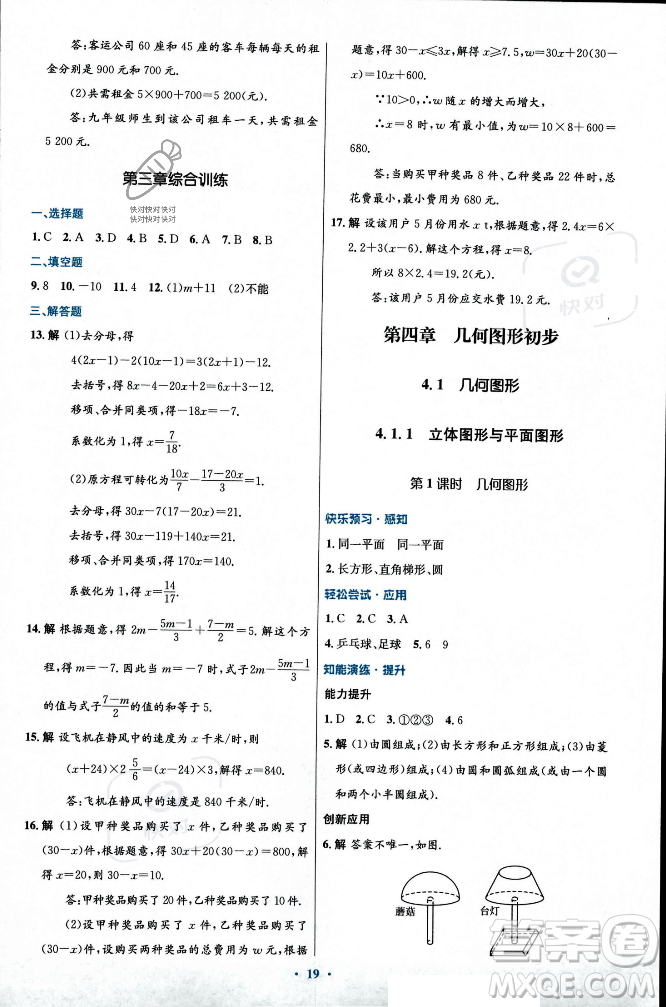 答:客运公司 60 座和 45 座的客车每辆每天的租
金分别是 900 元和 700 元.
(2)共需租金 5×900+700=5 200(元).
答:九年级师生到该公司租车一天，共需租金
5 200 元.
第三章综合训练
快对快对快对
快对快对快对
一、选择题
1.C 2.A 3.D 4.B 5.D 6.A 7.B 8.B
二、填空题
9.8 10.-10 11.4 12.(1)m+11 (2)不能
三、解答题
13.解 (1)去分母,得
4(2x-1)-2(10x-1)=3(2x-1)-9.
去括号,得 8x-4-20x+2=6x-3-9.
移项、合并同类项,得-18x=-7.
系数化为 1,得 x=7/18.
(2)原方程可转化为10x/7-(17-20x)/3=1.
去分母,得 30x-7(17-20x)=21.
去括号,得 30x-119+140x=21.
移项、合并同类项,得 170x=140.
系数化为 1,得 x=14/17.
14.解 根据题意,得 2m-(5m-1)/3+(7-m)/2=5.解这个方
程,得 m=-7.因此当 m=-7 时,式子2m-(5m-1)/3
的值与式子(7-m)/2的值的和等于 5.
15.解 设飞机在静风中的速度为 x 千米/时,则
(x+24)×2 5/6=(x-24)×3,解得 x=840.
答:飞机在静风中的速度是 840 千米/时.
16.解 (1)设甲种奖品购买了 x 件,乙种奖品购买了
(30-x)件,根据题意,得 30x+20(30-x)=800,
解得 x=20,则 30-x=10.
答:甲种奖品购买了 20 件,乙种奖品购买了 10 件.
(2)设甲种奖品购买了 x 件,乙种奖品购买了
(30-x)件,设购买两种奖品的总费用为 w 元,根据
题意,得 30-x≤3x,解得 x≥7.5,w=30x+20(30-
x)=10x+600.
∵10>0,∴w 随 x 的增大而增大.
∴x=8 时,w 有最小值为 w=10×8+600=
680.
答:当购买甲种奖品 8 件、乙种奖品 22 件时,总
花费最小,最小费用为 680 元.
17.解 设该用户 5 月份用水 x t,根据题意,得 2.4x=6×
2.2+3(x-6),解这个方程,得 x=8.
所以 8×2.4=19.2(元).
答:该用户 5 月份应交水费 19.2 元.
快对
第四章 几何图形初步
4.1 几何图形
4.1.1 立体图形与平面图形
第 1 课时 几何图形
快乐预习·感知
1.同一平面 同一平面
2.长方形、直角梯形、圆
轻松尝试·应用
1.C 2.C 3.A
4.乒乓球、足球 5.6 9
知能演练·提升
能力提升
1.D 2.C 3.①②③ 4.6
5.解 (1)由圆组成;(2)由长方形和正方形组成;(3)由菱
形(或四边形)组成;(4)由圆和圆弧组成(或由一个圆
和两个小半圆组成).
创新应用
6.解 答案不唯一,如图.
蘑菇 台灯
快对
答案圈
19